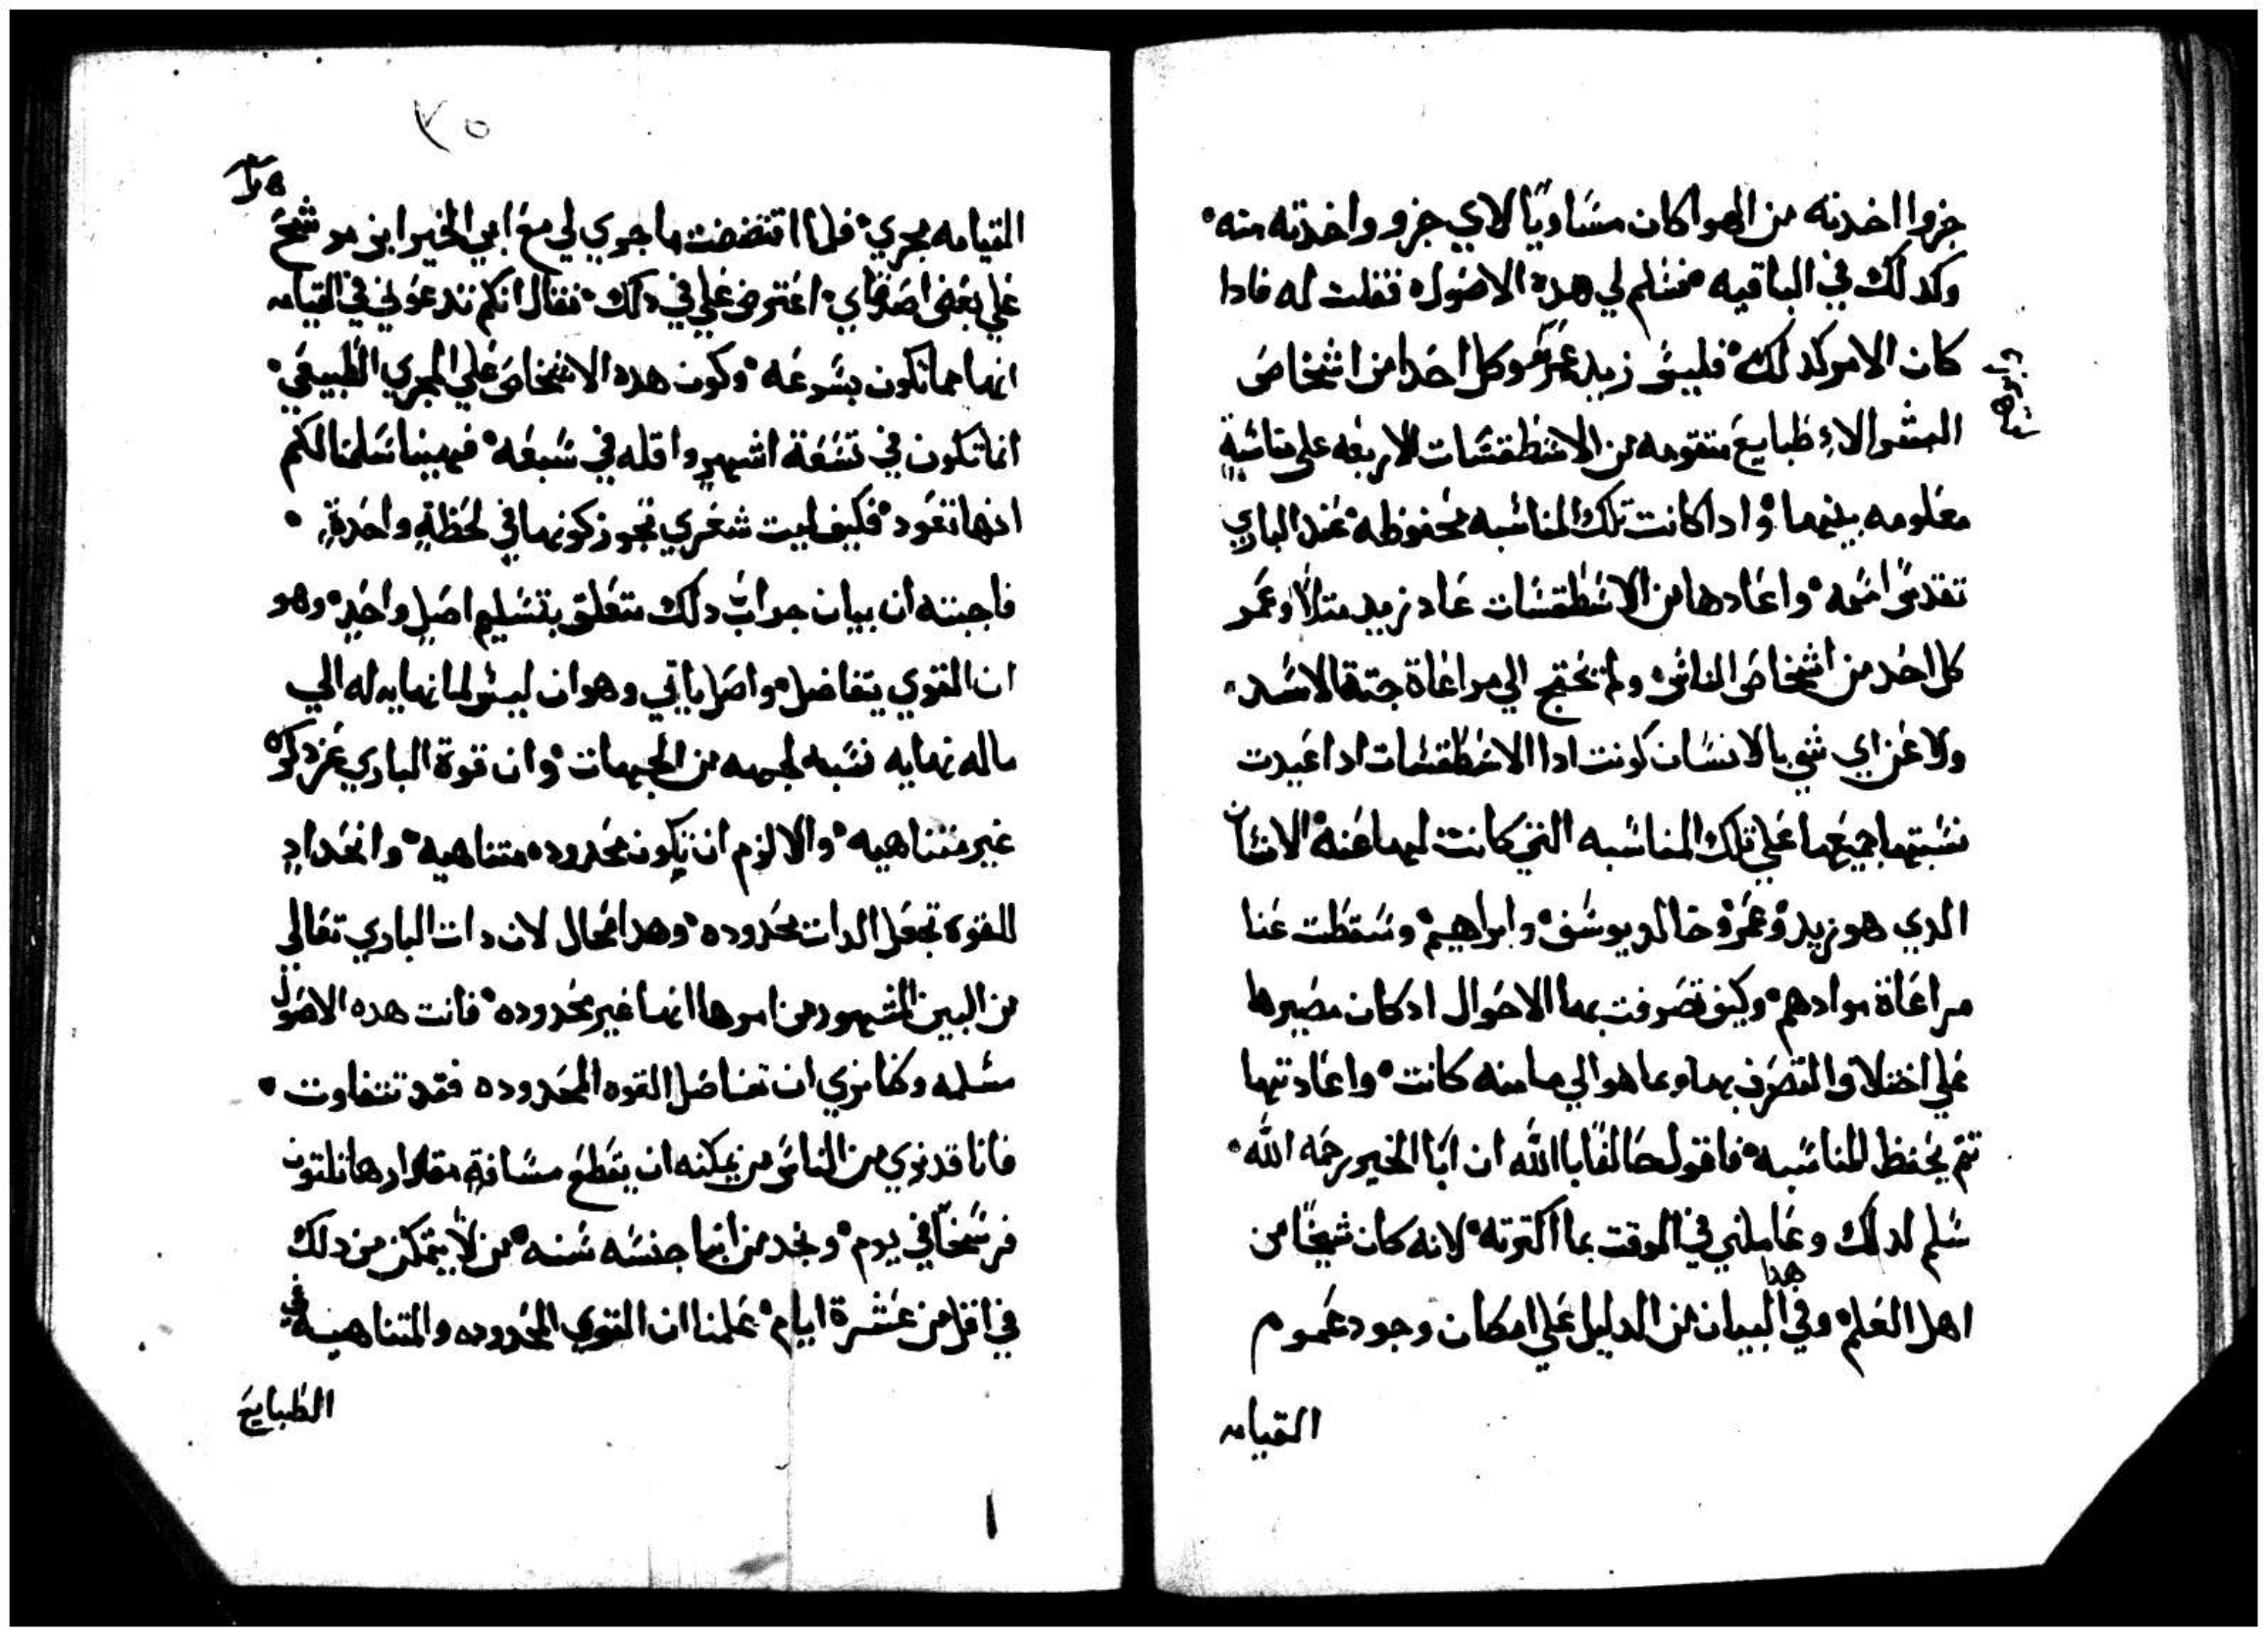 جزوا اخدته من الهوا كان مساويًا لاي جزو واخدته منه
وكدلك في الباقيه فسلم لي هده الاصول فقلت له فادا
كان الامر كدلك فليس زيد وعمرو وكل احد من اشخاص
البشر الا طبايع متقومه من الاسطقسات الاربعه علي مناسبةٍ
معلومه بينهما وادا كانت تلك المناسبه محفوظه عند الباري
تقدس اسمه واعادها من الاسطقسات عاد زيد متلاً وعمرو
كل احد من اشخاص الناس ولم نحتج الي مراعاة جتة الاسد
ولا عن اي شي بالانسان كونت ادا الاسطقسات ادا اعيدت
نسبتها جميعها علي تلك المناسبه التي كانت لها عنه الانسان
الدي هو زيد وعمرو وخالد يوسف وابراهيم وسقطت عنا
مراعاة موادهم وكيف تصرفت بها الاحوال ادكان مصيرها
علي اختلاف التصرف بها وما هو الي ما منه كانت واعادتها
تتم بحفظ المناسبه فاقول حالفًا بالله ان ابا الخير رحمه الله
سلم لدلك وعاملني في الوقت بما اكترته لانه كان شيخًا من
اهل العلم وفي هدا البيان من الدليل علي امكان وجود عموم
القيامه
٧٥
القيامه مجري فلما اقتضضت ما جري لي مع ابي الخير ابن مو شيح
علي بعض اصدقاي اعترض علي في دلك فقال انكم تدعون في القيامه
انها مما تكون بسرعه وكون هده الاشخاص علي المجري الطبيعي
انما تكون في تسعة اشهرٍ واقله في سبعه فهبنا سلمنا لكم
انها تعود فكيف ليت شعري تجوز كونها في لحظةٍ واحدةٍ
فاجبته ان بيان جواب دلك متعلق بتسليم اصلٍ واحدٍ وهو
ان القوي يتفاضل واصل ياتي وهو ان ليس لما نهايه له الي
ماله نهايه نسبه لجهه من الجهات وان قوة الباري عز دكره
غير متناهيه والا لزم ان تكون محدوده متناهيه وانحدادٍ
للقوه تجعل الدات محدوده وهدا محال لان دات الباري تعالي
من البين المشهور من امرها انها غير محدوده فانت هده الاصول
مسلمه وكنا نري ان تفاضل القوه المحدوده فقد تتفاوت
فانا قد نري من الناس من يمكنه ان يقطع مسافةٍ مقدارها تلتون
فرسخًا في يوم ونجد من ابنا جنسه سنه من لا يتمكن من دلك
في اقل من عشرة ايام علمنا ان القوي المحدوده والمتناهيه في
الطبايع